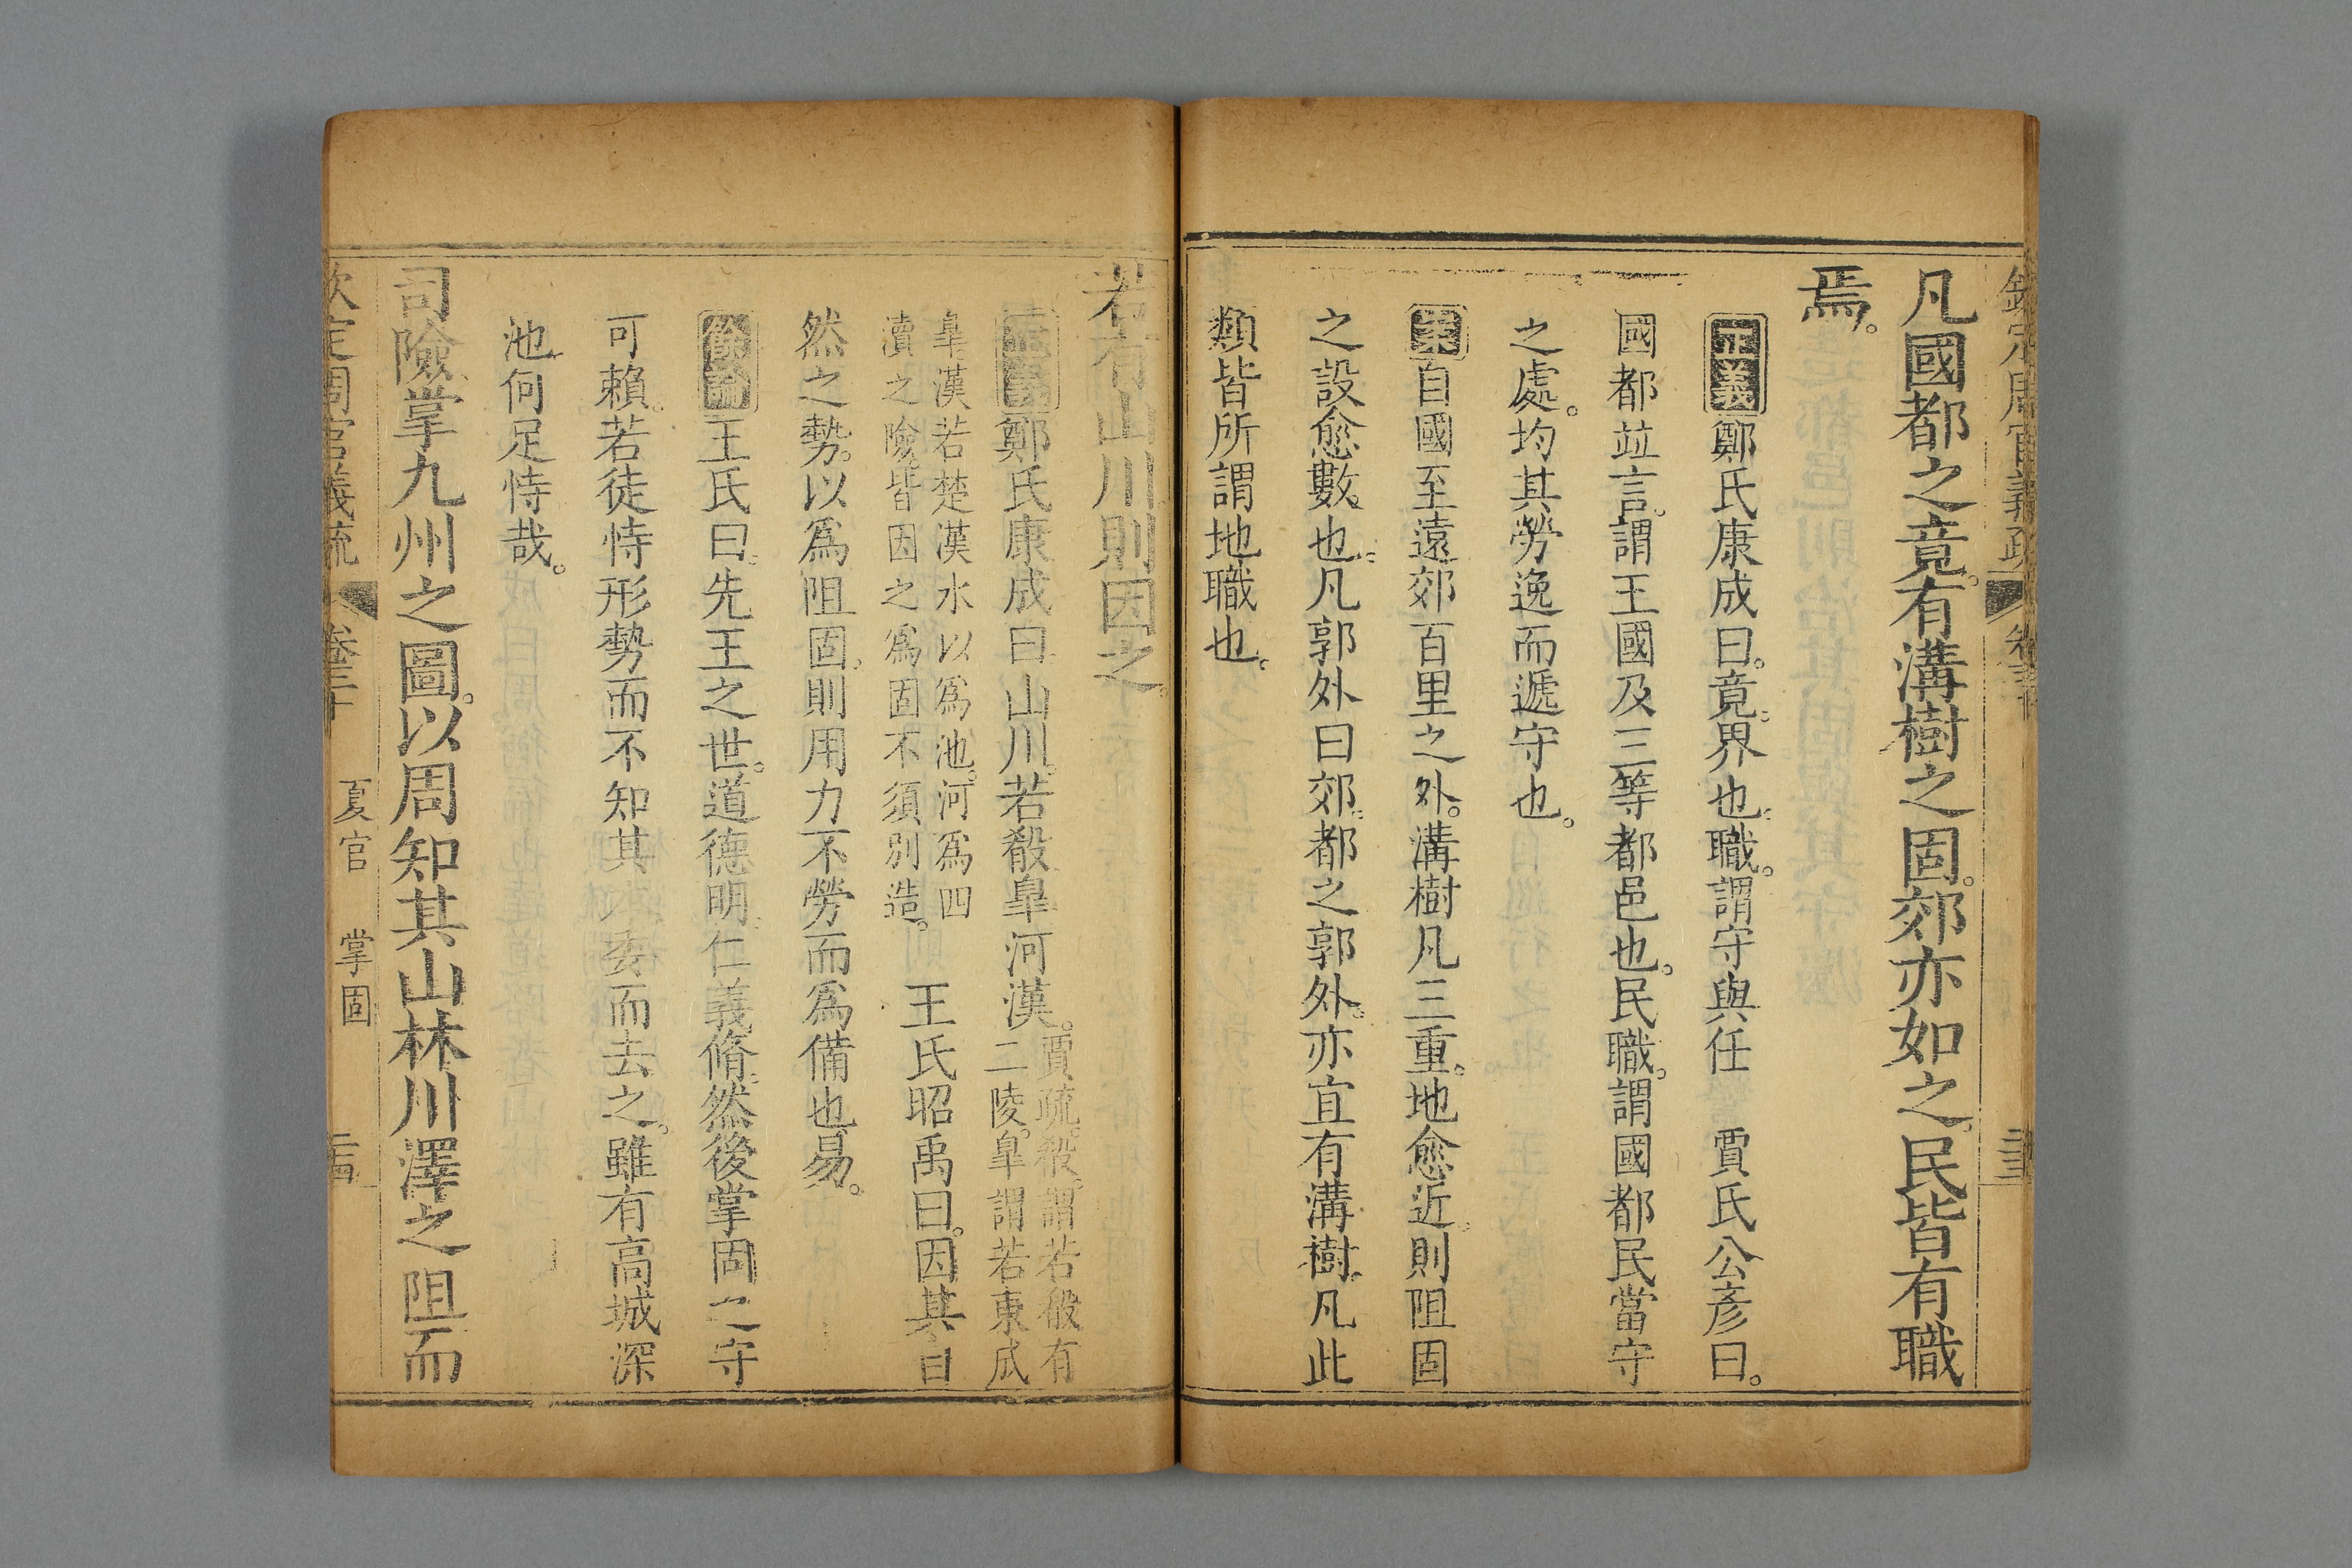 欽定周官義疏 卷三十
凡國都之竟。有溝樹之固。郊亦如之。民皆有職
焉。
正義鄭氏康成曰。竟界也。職。謂守與任 賈氏公彥曰。
國都竝言。謂王國及三等都邑也。民職。謂國都民當守
之處。均其勞逸而遞守也。
案自國至遠郊百里之外。溝樹凡三重。地愈近。則阻固
之設愈數也。凡郭外曰郊。都之郭外。亦宜有溝樹。凡此
類皆所謂地職也。
若有山川則因之。
正義鄭氏康成曰山川。若殽皐河漢。賈疏。殽。謂若殽有
二陵。皐謂若東成
皐。漢若楚漢水以爲池。河爲四
瀆之險。皆因之爲固不須別造。 王氏昭禹曰。因其自
然之勢。以爲阻固。則用力不勞而爲備也易。
餘論王氏曰。先王之世。道德明。仁義脩。然後掌固之守
可賴。若徒恃形勢而不知其人。委而去之。雖有高城深
池。何足恃哉。
司險掌九州之圖。以周知其山林川澤之阻而
欽定周官義疏 卷三十 夏官 掌固